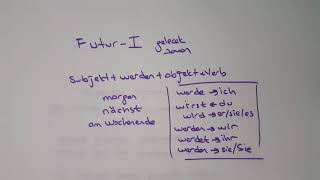 Futur-I gelecek zaman
Subjekt + werden + objekt + Verb
morgen
nächst
am Wochenende
werde → ich
wirst → du
wird → er/sie/es
werden → wir
werdet → ihr
werden → sie/Sie